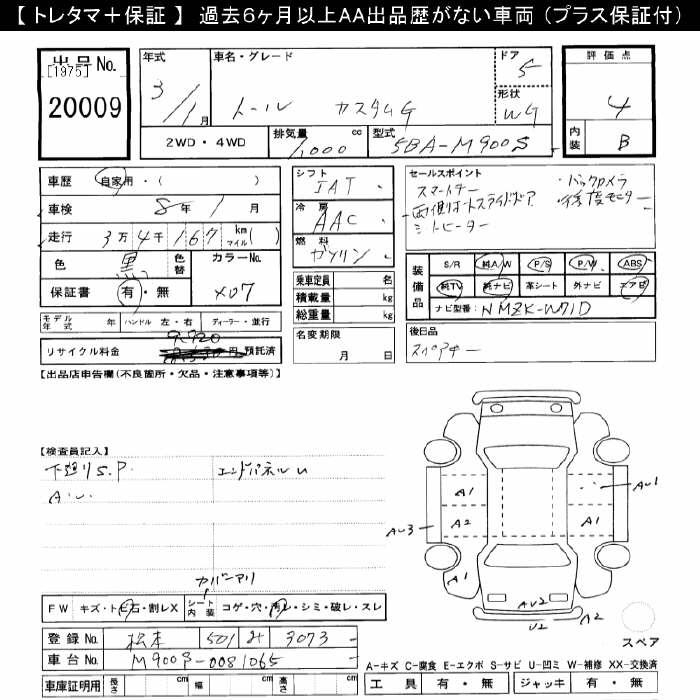 【 トレタマ＋保証 】 過去6ヶ月以上AA出品歴がない車両 (プラス保証付)
出品No.
[1975]
20009
年式
3/1月
車名・グレード
トール カスタムG
ドア
5
形状
WG
評価点
4
内装
B
2WD・4WD
排気量 1,000 cc
型式 5BA-M900S
車歴 自家用・( )
車検 8年1月
走行 3万4千167 km マイル( )
色 黒
色替
カラーNo.
X07
保証書 有・無
シフト
IAT
冷房
AAC
燃料
ガソリン
乗車定員 名
積載量 kg
総重量 kg
セールスポイント
スマートキー
・バックカメラ
両側オートスライドドア
シートヒーター
装備品
S/R 純A/W P/S P/W ABS
純TV 純ナビ 革シート 外ナビ エアB
ナビ型番: NMZK-W71D
モデル年式 年 ハンドル 左・右 ディーラー・並行
リサイクル料金 9,920 円 預託済
名変期限
月 日
後日品
スペアキー
【出品店申告欄(不良箇所・欠品・注意事項等)】
【検査員記入】
下廻りS.P. エンドパネルU
A.U.
A1
AU1
A2
A1
AU3
A1
AU2
U2
A2
カバーアリ
FW キズ・トビ石・割レX シート内装 コゲ・穴・汚レ・シミ・破レ・スレ
スペア
登録No. 松本 501 み 3073
車台No. M900S-0081065
A-キズ C-腐食 E-エクボ S-サビ U-凹ミ W-補修 XX-交換済
車庫証明用 長さ cm 幅 cm 高さ cm
工具 有・無 ジャッキ 有・無